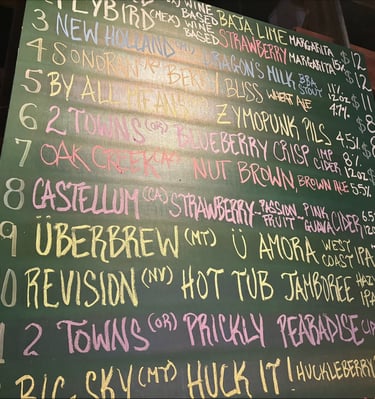 FLYBIRD (MEX) WINE BASED BAJA LIME MARGARITA $
3 WINE BASED STRAWBERRY MARGARITA 15% $12
4 NEW HOLLAND DRAGON'S MILK BBA STOUT 11% 12oz $11
5 SONORAN BERRY BLISS WHEAT ALE 4.7% $8
6 BY ALL MEANS ZYMOPUNK PILS 4.5% $8
7 2 TOWNS (OR) BLUEBERRY CRISP IMP CIDER 8% 12oz
OAK CREEK NUT BROWN BROWN ALE 5.5%
8 CASTELLUM (CA) STRAWBERRY-PASSION FRUIT-PINK GUAVA CIDER
9 ÜBERBREW (MT) Ü AMORA WEST COAST IPA
0 REVISION (NV) HOT TUB JAMBOREE HAZY IPA
1 2 TOWNS (OR) PRICKLY PEARADISE
BIG SKY (MT) HUCK IT! HUCKLEBERRY